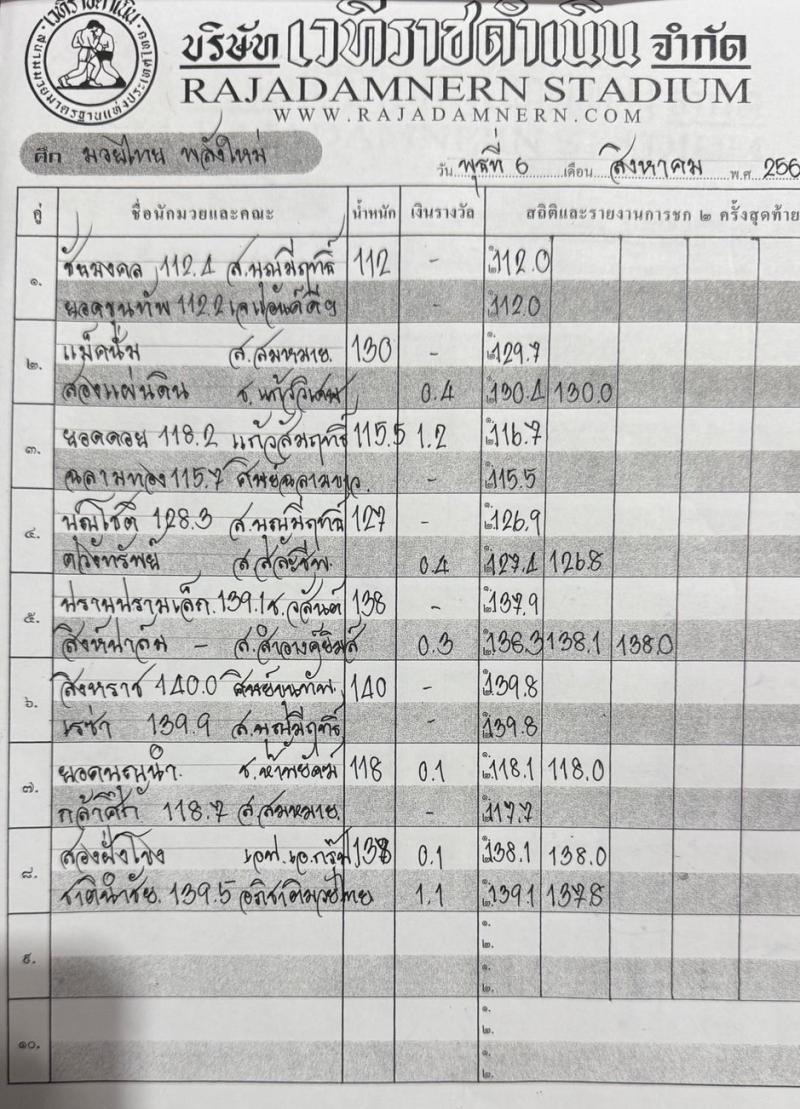 เวทีราชดำเนิน
สถานมวยมาตรฐานแห่งประเทศไทย
บริษัท เวทีราชดำเนิน จำกัด
RAJADAMNERN STADIUM
WWW.RAJADAMNERN.COM
ศึก มวยไทย พลังใหม่
วัน พุธที่ 6 เดือน สิงหาคม พ.ศ. 256
คู่ ชื่อนักมวยและคณะ น้ำหนัก เงินรางวัล สถิติและรายงานการชก ๒ ครั้งสุดท้าย
๑. ชัยมงคล 112.4 ส.บุญมีฤทธิ์ 112 - 112.0
ยอดขุนทัพ 112.2 เจเอ็นด์ดีย - 112.0
๒. แม็คนั่ม ส.สมหมาย. 130 - 129.7
สองแผ่นดิน ช.แก้ววิเศษ 0.4 130.4 130.0
๓. ยอดดอย 118.2 แก้วสัมฤทธิ์ 115.5 1.2 116.7
ฉลามทอง 115.7 ศิษย์ฉลามขาว. - 115.5
๔. 128.3 ส.บุญมีฤทธิ์ 127 - 126.9
ดวงทรัพย์ 0.4 127.4 126.8
๕. ปราบปรามเล็ก. 139.1 ช.วสันต์ 138 - 137.9
สิงห์ปาล์ม - 0.3 136.3 138.1 138.0
๖. สิงหราช 140.0 ศิษย์ขุนทัพ. 140 - 139.8
เรซ่า 139.9 ส.บุญมีฤทธิ์ - 139.8
๗. ช.ห้าพยัคฆ์ 118 0.1 118.1 118.0
กล้าศึก 118.7 ส.สมหมาย. - 117.7
๘. สองฝั่งโขง เอฟ.เอ.กรุ๊ป 138 0.1 138.1 138.0
ชาตินำชัย. 139.5 อภิชาติมวยไทย 1.1 139.1 137.8
๙. ๑.
๒.
๑.
๒.
๑๐. ๑.
๒.
๑.
๒.